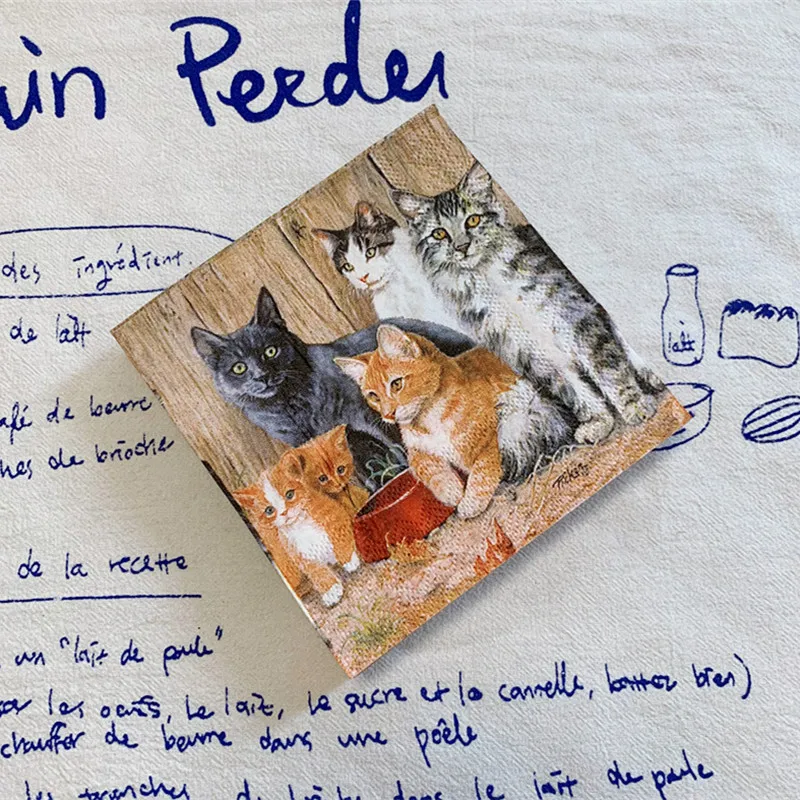 ain Perdu
des ingrédient.
de lait
café de beurre
ches de brioche
lait
de la recette
un "lait de poule"
les oeufs, le lait, le sucre et la cannelle, battez bien)
chauffer de beurre dans une poêle
les tranches de dans le lait de poule